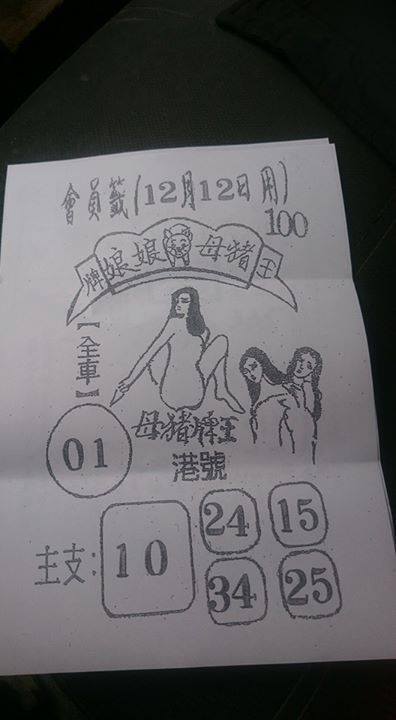 會員籤(12月12日用)
100
牌娘娘母豬王
【全車】
01
母豬牌王
港號
主支：10
24 15
34 25